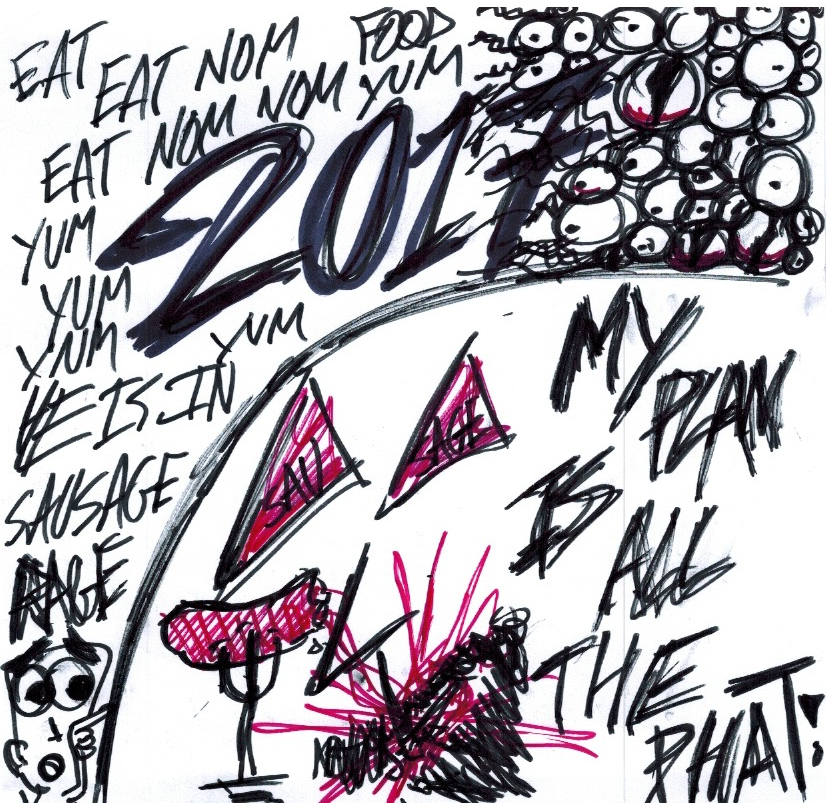 FOOD
EAT EAT NOM YUM
EAT NOM NOM NOM
2017
YUM
YUM
YUM YUM
HE IS IN
SAUSAGE
RAGE
SAU SAGE
MY
PLAN
IS
ALL
THE
PHAT!